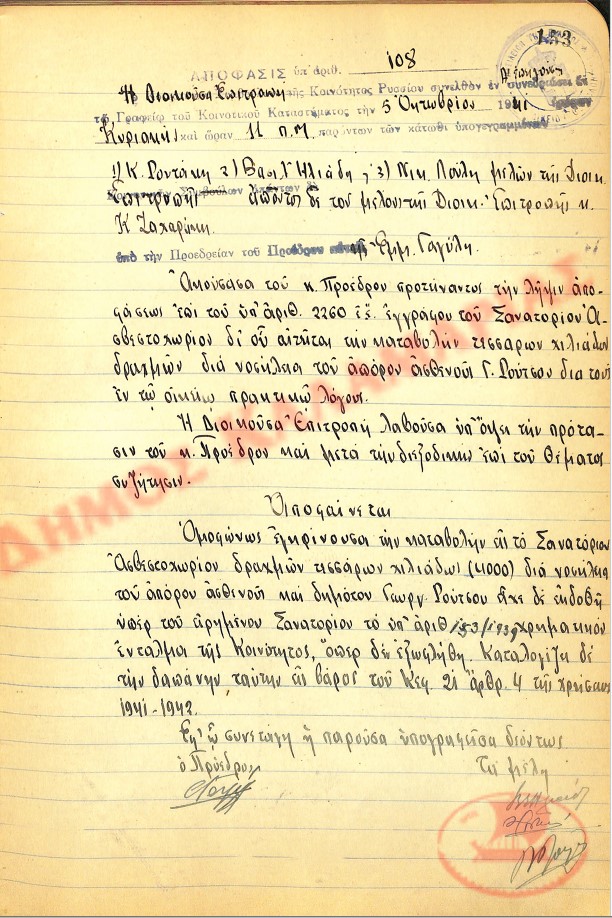 153
ΑΠΟΦΑΣΙΣ ὑπ' ἀριθ. 108
Ἡ Διοικοῦσα Ἐπιτροπὴ τῆς Κοινότητος Ρυσσίου συνελθὸν ἐν συνεδριάσει ἐν
τῷ Γραφείῳ τοῦ Κοινοτικοῦ Καταστήματος τὴν 5 Ὀκτωβρίου 1941
Κυριακὴ καὶ ὥραν 11 π.μ. παρόντων τῶν κάτωθι ὑπογεγραμμένων
1) Κ. Ροντάκη 2) Βασ. Ἠλιάδη, 3) Νικ. Πούλη μελῶν τῆς Διοικ.
Ἐπιτροπῆς ἀπόντος δὲ τοῦ μέλους τῆς Διοικ. Ἐπιτροπῆς κ.
Κ Ζαχαράκη
ὑπὸ τὴν Προεδρείαν τοῦ Προέδρου Ἐμμ. Γαγύλη.
Ἀκούσασα τοῦ κ. Προέδρου προτείναντος τὴν λῆψιν ἀπο-
φάσεως ἐπὶ τοῦ ὑπ' ἀριθ. 2260 ἐ.ἔ. ἐγγράφου τοῦ Σανατορίου Ἀ-
σβεστοχωρίου δι' οὗ αἰτῆται τὴν καταβολὴν τεσσάρων χιλιάδων
δραχμῶν διὰ νοσήλεια τοῦ ἀπόρου ἀσθενοῦς Γ. Ρούτσου διὰ τοὺς
ἐν τῷ οἰκείῳ πρακτικῷ λόγους.
Ἡ Διοικοῦσα Ἐπιτροπὴ λαβοῦσα ὑπ' ὄψει τὴν πρότα-
σιν τοῦ κ. Προέδρου καὶ μετὰ τὴν διεξοδικὴν ἐπὶ τοῦ θέματος
συζήτησιν.
Ἀποφαίνεται
Ὁμοφώνως ἐγκρίνουσα τὴν καταβολὴν εἰς τὸ Σανατόριον
Ἀσβεστοχωρίου δραχμῶν τεσσάρων χιλιάδων (4000) διὰ νοσήλεια
τοῦ ἀπόρου ἀσθενοῦς καὶ δημότου Γεωργ. Ρούτσου εἶχε δὲ ἐκδοθῆ
ὑπὲρ τοῦ εἰρημένου Σανατορίου τὸ ὑπ' ἀριθ 153/1939 χρηματικὸν
ἔνταλμα τῆς Κοινότητος, ὅπερ δὲν ἐξωφλήθη. Καταλογίζει δὲ
τὴν δαπάνην ταύτην εἰς βάρος τοῦ Κεφ. 21 ἄρθρ. 4 τῆς χρήσεως
1941-1942.
Ἐφ' ᾧ συνετάγη ἡ παροῦσα ὑπογραφεῖσα δεόντως
ὁ Πρόεδρος Τὰ μέλη
ΔΗΜΟΣ ΚΑΛΑΜΑΡΙΑΣ